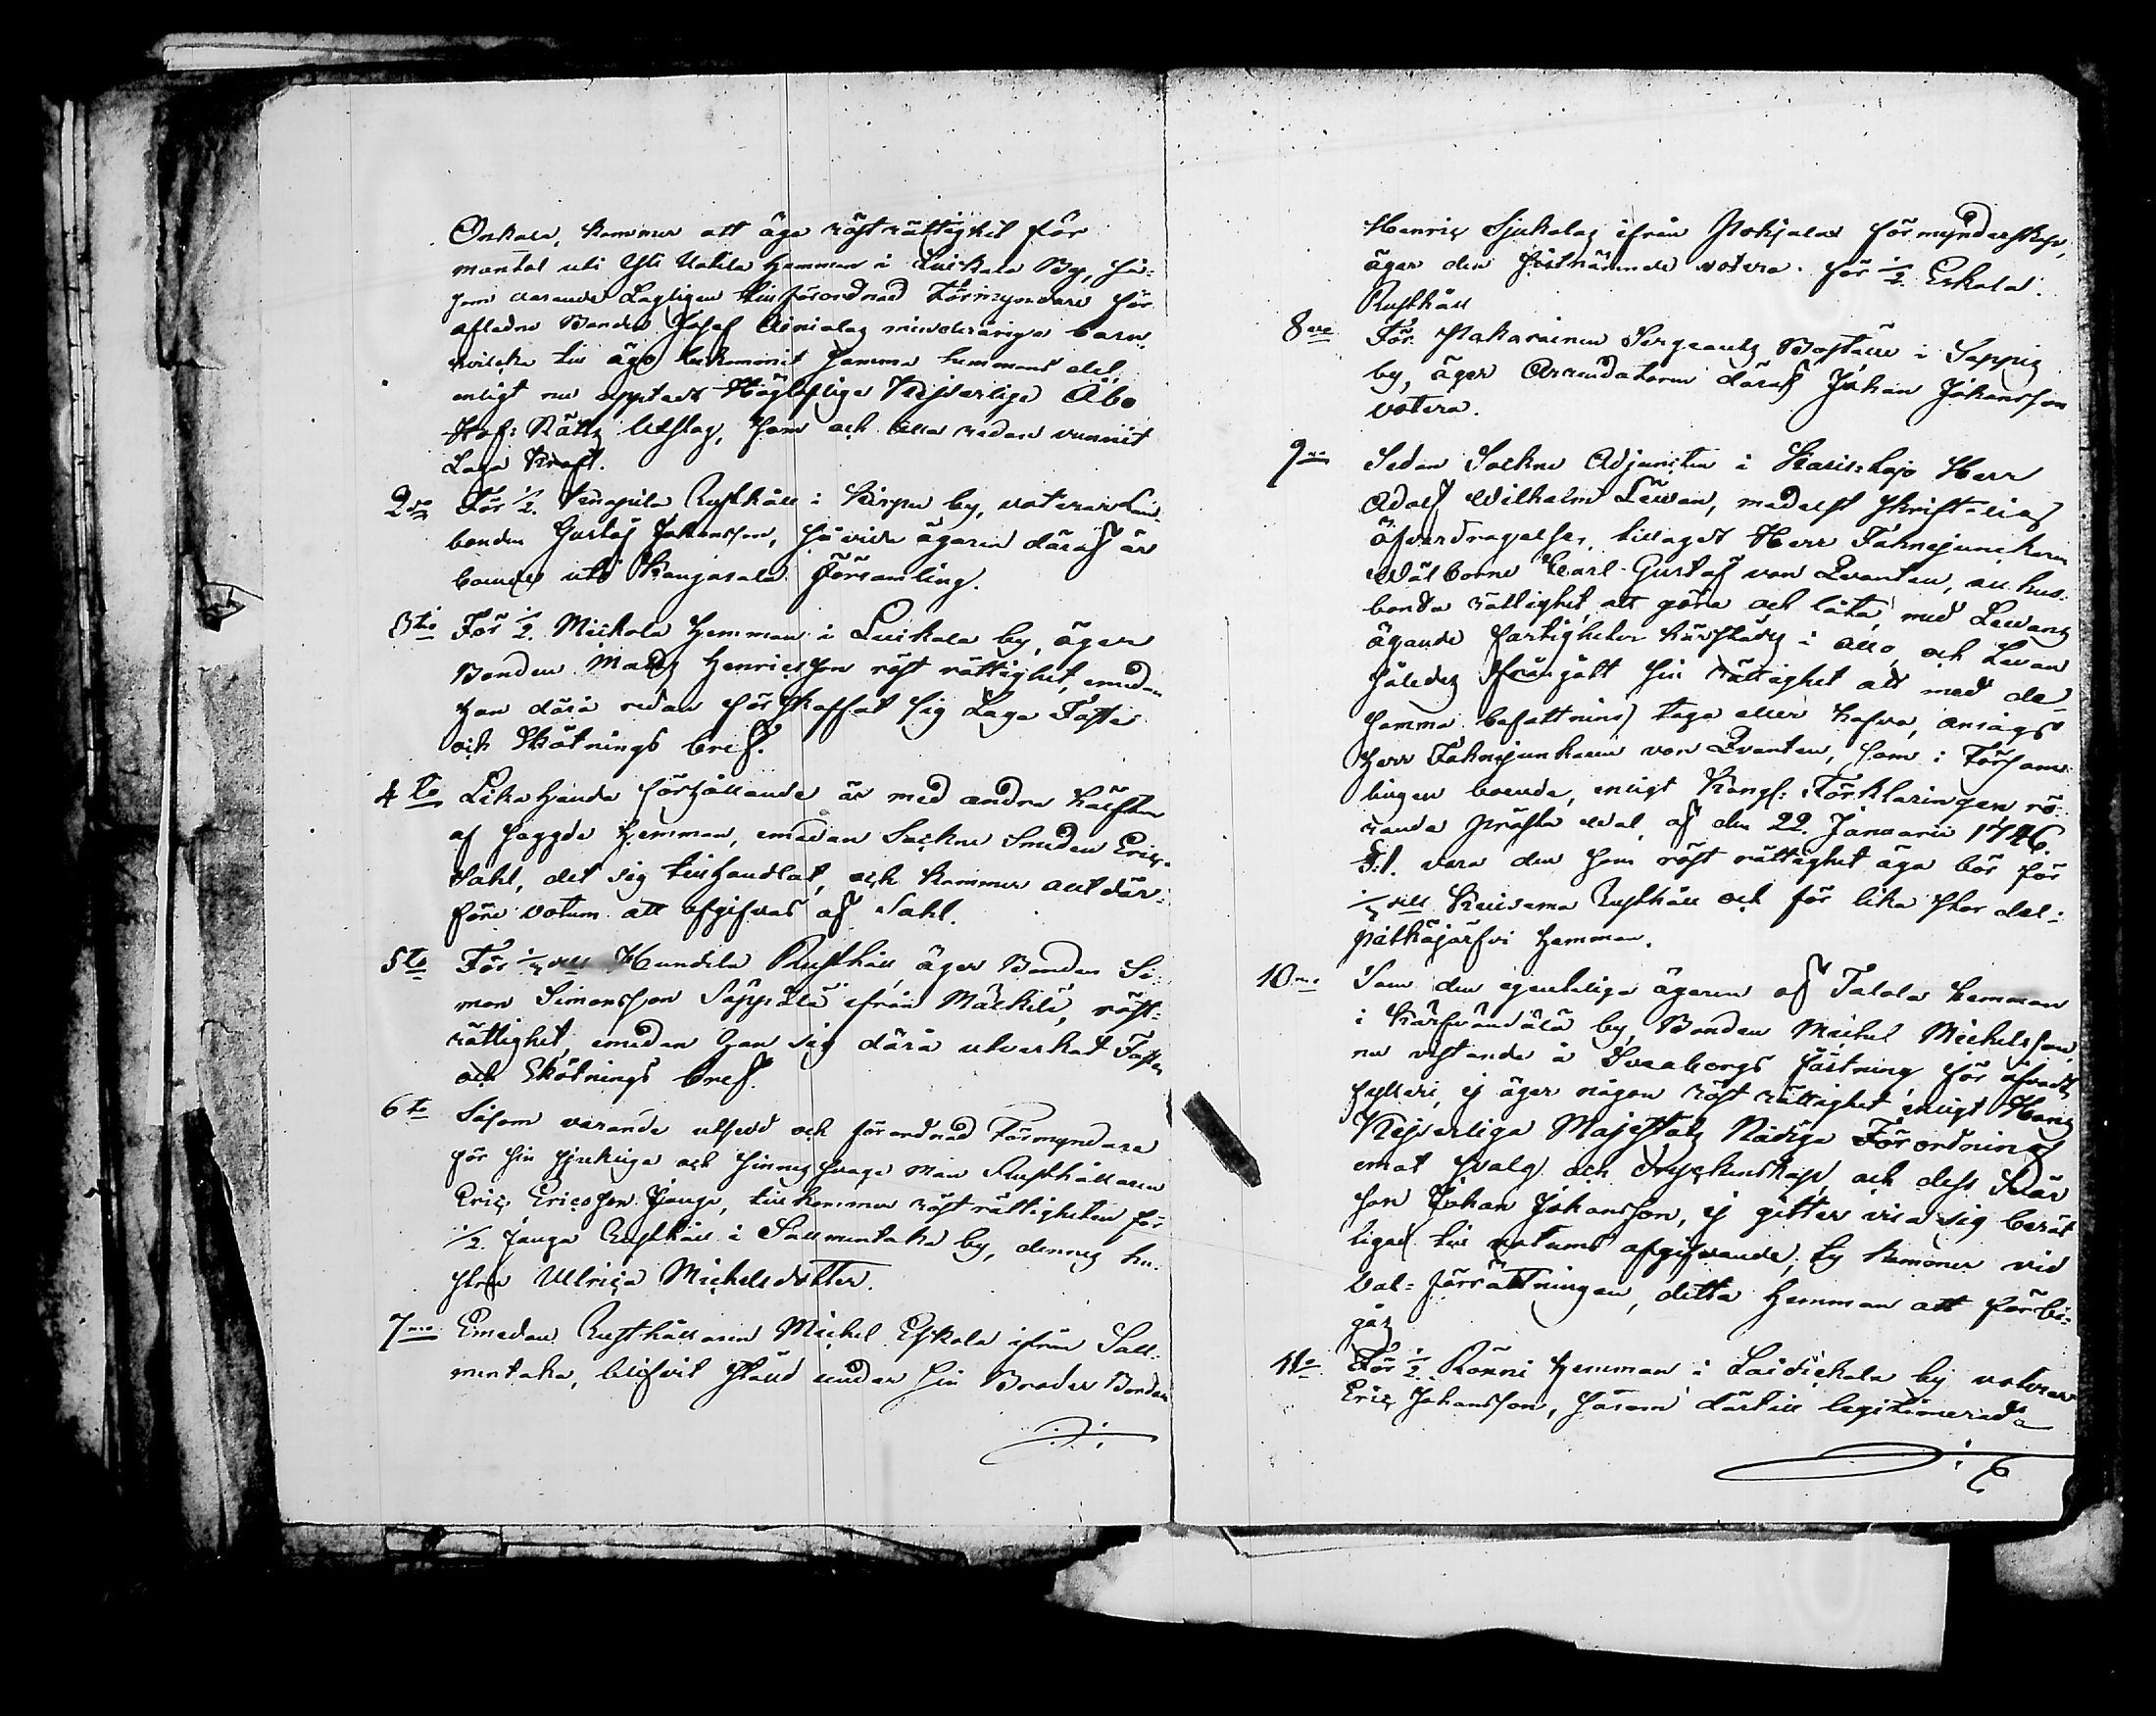 Onkala, kommer att äga röst rättighet för
mantal uti Yli Uotila Hemman i Luikala By, så-
som varande Lagligen tillförordnad Förmyndare för
afledne Bonden Josef Ainialas minderåriga barn
hvilka till ägo tillkommit samma hemmans del,
enligt nu uppteedt Höglofliga Keyserliga Åbo
Hof: Rätts Utslag, som ock allaredan vunnit
Laga Kraft.
2do För 1/2. Knapila Rusthåll i Kirpu by, voterar Lan-
bonden Gustaf Johansson, så vida ägaren däraf är
boende uti Kangasala Församling.
3tio För 1/2. Mickola Hemman i Luikala by, äger
Bonden Matts Henricsson röst rättighet, emedan
han därå redan förskaffat sig Laga Fasta
och Skötnings bref.
4to Lika handa förhållande är med andra hälften
af saggde Hemman, emedan Sockne Smeden Eric
Sahl, det sig tillhandlat, och kommer altdär-
före votum att afgifvas af Sahl.
5to För Hundila Rusthåll, äger Bonden Si-
mon Simonsson Seppälä ifrån Mäckilä, röst-
rättighet, emedan han sig därå utverkat Fasta
och Skötnings bref.
6to Såsom varande utsedd och förordnad Förmyndare
för sin sjukliga och sinnes svage man Rusthållaren
Eric Ericsson Jauga, tillkommer röst rättigheten för
1/2. Jauga Rusthåll i Sallmentaka by, dennes hu-
stru Ulrica Michelsdotter.
7mo Emedan Rusthållaren Michel Eskola ifrån Sall-
mentaka, blifvit ställd under sin Broder Bonden
Henric Sjukalas ifrån Pohjala förmynderskap,
äger den sistnämnde votera för 1/2. Eskola
Rusthåll
8vo För Makarainen Sergeants Boställe i Seppis
by, äger Arrendatorn däraf Johan Johansson
votera.
9no Sedan Sockne Adjuncten i Karislojo Herr
Adolf Wilhelm Lewan, medelst skriftelig
öfverdragelse, tillagt Herr Fahnejunkaren
Wälborne Carl Gustaf von Qvanten, all hus-
bonda rättighet, att göra och låta, med Lewans
ägande fastigheter härstädes i allo, och Lewan
således ifrångått sin rättighet att med de-
samma befattning taga eller hafva, ansågs
Herr Fahnejunkaren von Qvanten, som i Försam-
lingen boende, enligt Kongl: Förklaringen rö-
rande Präste Val, af den 22. Januarii 1746.
§:1. vara den som röst rättighet äga bör för
Rusthåll och för lika stor del i
Pälkäjärfvi Hemman.
10mo Som den egenteliga ägaren af Talola Hemman
i by, Bonden Michel Michelsson
nu vistande å Sveaborgs fästning för öfvadt
fylleri, ej äger någon röst rättighet enligt Hans
Kejserliga Majestäts Nådiga Förordning
emot svalg och Dryckenskap, och dess Svär
son Johan Johansson, ej gitter visa sig berät-
tigad till votums afgifvande; ty kommer vid
Val-förrättningen, detta Hemman att förbi-
gås
11mo För 1/2. Rönni Hemman i Laidickala by voterar
Eric Johansson, såsom därtill legitimerad